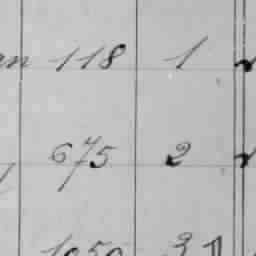 118 1
675 2
1050 3